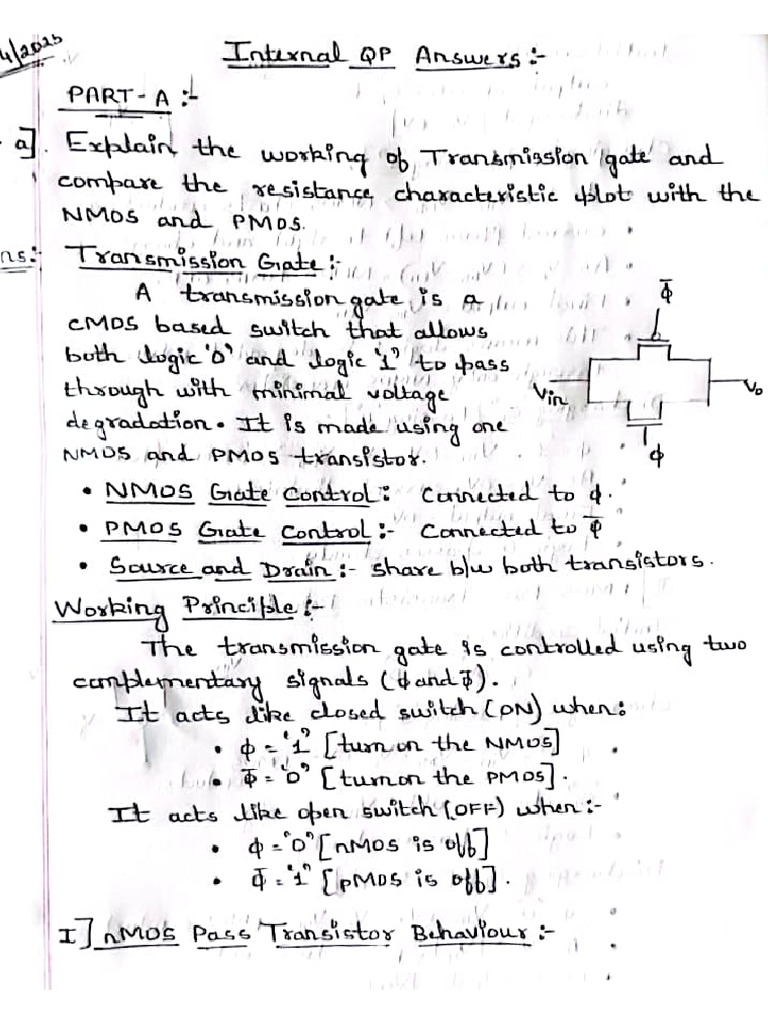 4/2025
Internal QP Answers:-
PART-A:-
a]. Explain the working of Transmission gate and
compare the resistance characteristic plot with the
NMOS and PMOS.
ns:- Transmission Gate:-
A transmission gate is a
CMOS based switch that allows
both logic '0' and logic '1' to pass
through with minimal voltage
degradation. It is made using one
NMOS and PMOS transistor.
Φ̅
Vin
Vo
ϕ
• NMOS Gate Control: Connected to ϕ.
• PMOS Gate Control:- Connected to Φ̅
• Source and Drain:- share b/w both transistors.
Working Principle:-
The transmission gate is controlled using two
complementary signals (ϕ and Φ̅).
It acts like closed switch (ON) when:
• ϕ = "1" [turn on the NMOS]
• Φ̅ = "0" [turn on the PMOS].
It acts like open switch (OFF) when:-
• ϕ = "0" [nMOS is off]
• Φ̅ = "1" [pMOS is off].
I] nMOS Pass Transistor Behaviour:-